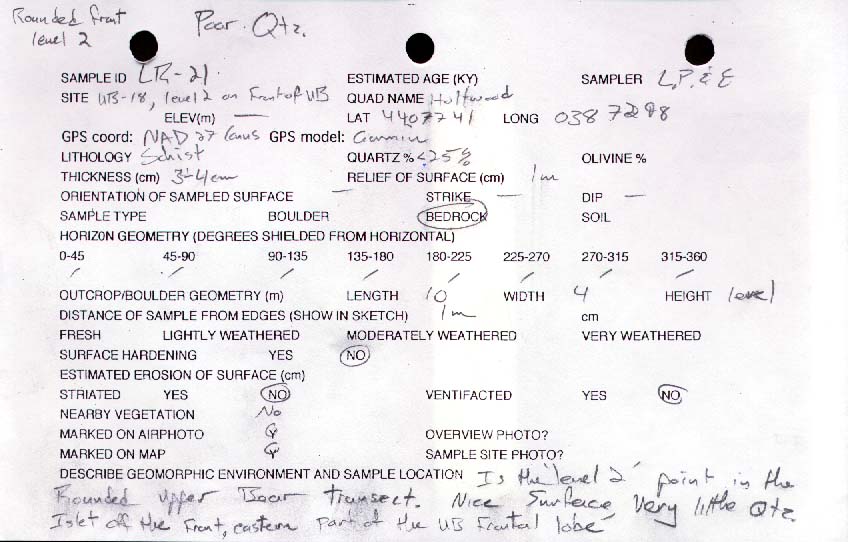 Rounded front Poor Qtz.
level 2
SAMPLE ID LR-21 ESTIMATED AGE (KY) SAMPLER L.P. & E
SITE UB-18, level 2 on Front of UB QUAD NAME Holtwood
ELEV(m) — LAT 4407741 LONG 0387298
GPS coord: NAD 27 GPS model: Garmin
LITHOLOGY Schist QUARTZ % <25% OLIVINE %
THICKNESS (cm) 3-4cm RELIEF OF SURFACE (cm) 1m
ORIENTATION OF SAMPLED SURFACE — STRIKE — DIP —
SAMPLE TYPE BOULDER BEDROCK SOIL
HORIZON GEOMETRY (DEGREES SHIELDED FROM HORIZONTAL)
0-45 45-90 90-135 135-180 180-225 225-270 270-315 315-360
/ / / / / / / /
OUTCROP/BOULDER GEOMETRY (m) LENGTH 10 WIDTH 4 HEIGHT level
DISTANCE OF SAMPLE FROM EDGES (SHOW IN SKETCH) 1m cm
FRESH LIGHTLY WEATHERED MODERATELY WEATHERED VERY WEATHERED
SURFACE HARDENING YES NO
ESTIMATED EROSION OF SURFACE (cm)
STRIATED YES NO VENTIFACTED YES NO
NEARBY VEGETATION No
MARKED ON AIRPHOTO Y OVERVIEW PHOTO?
MARKED ON MAP Y SAMPLE SITE PHOTO?
DESCRIBE GEOMORPHIC ENVIRONMENT AND SAMPLE LOCATION Is the "level 2" point in the
Rounded Upper Bear transect. Nice Surface, Very little Qtz.
Islet off the Front, eastern part of the UB Frontal lobe